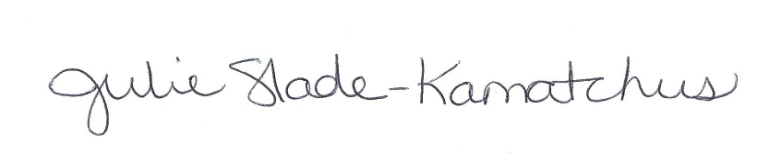 Julie Slade-Kamatchus